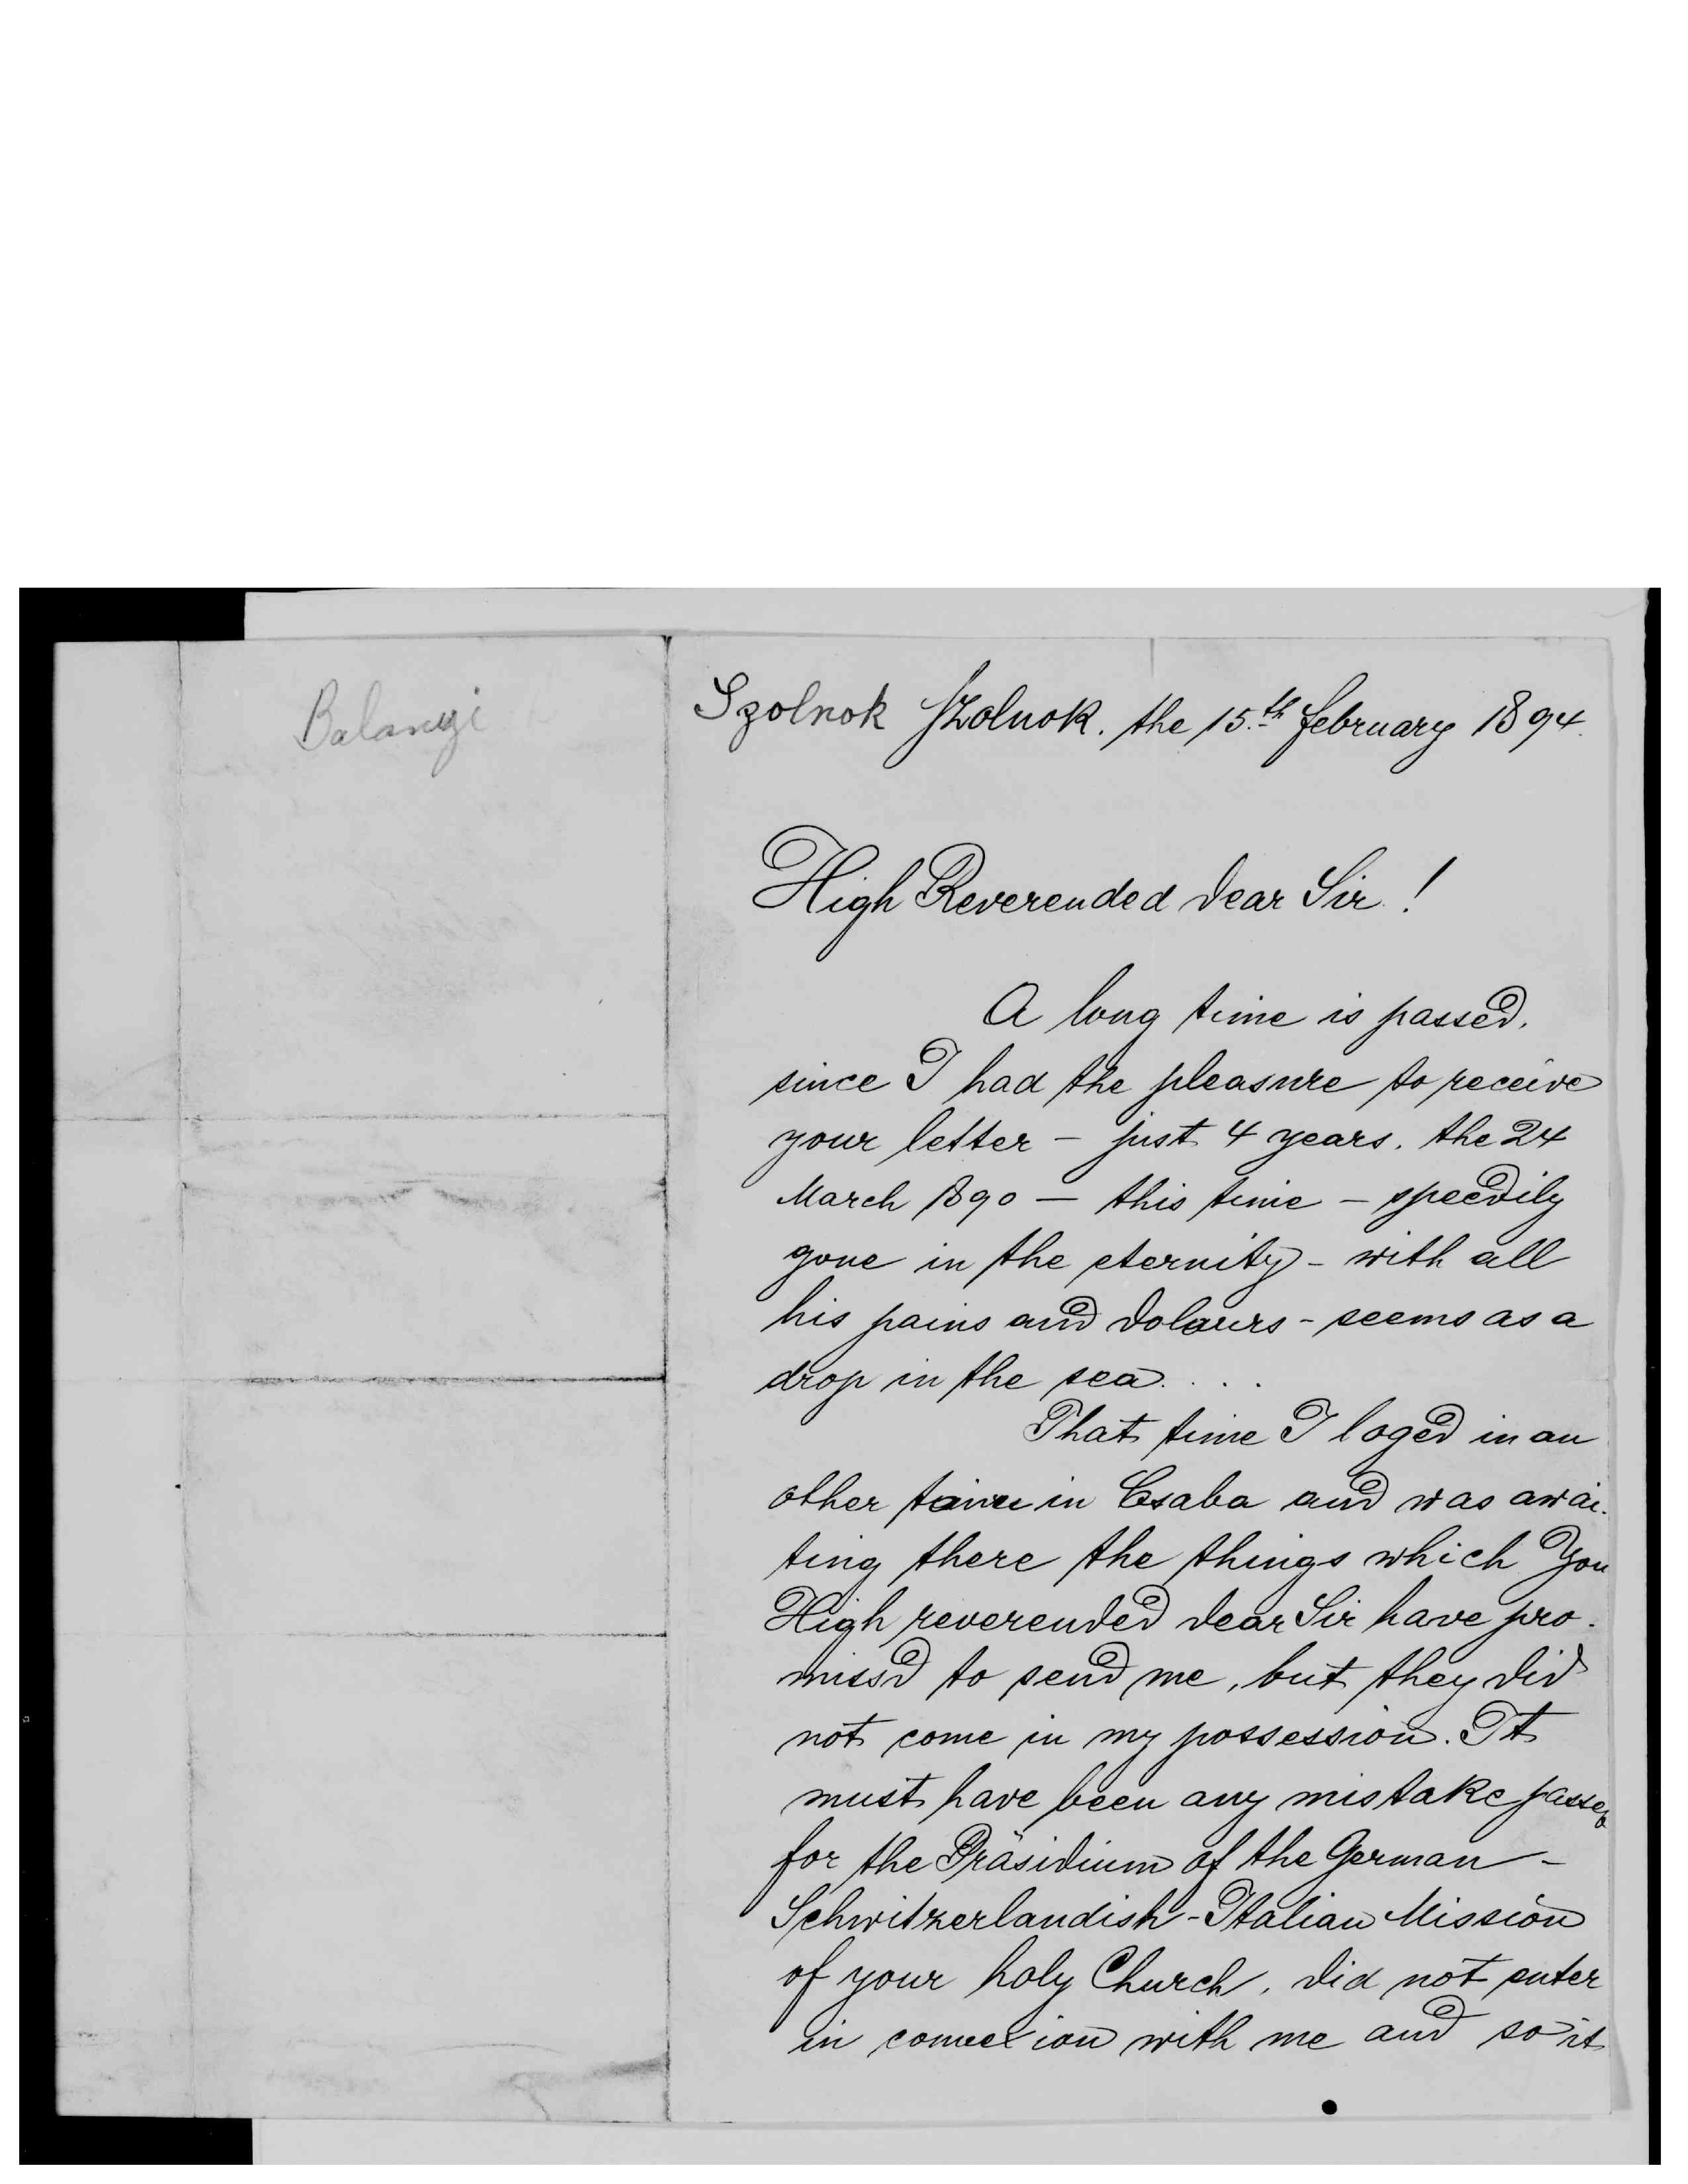 Balangi
Szolnok Szolnok. the 15.th february 1894.
High Reverended dear Sir !
A long time is passed,
since I had the pleasure to receive
your letter – just 4 years. the 24
March 1890 – this time – speedily
gone in the eternity – with all
his pains and dolours – seems as a
drop in the sea. . . .
That time I loged in an
other in Csaba and was awai-
ting there the things which You
High reverended dear Sir have pro-
missd to send me, but they did
not come in my possession. It
must have been any mistake passed
for the Präsidium of the German –
Schwitzerlandish – Italian Mission
of your holy Church, did not enter
in connexion with me and so it